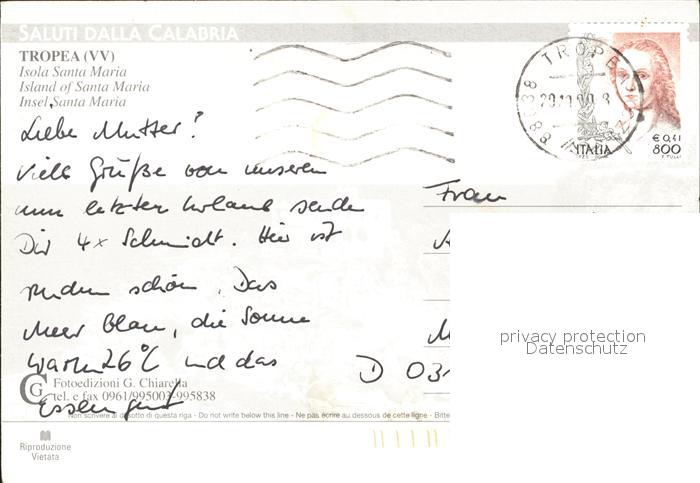 SALUTI DALLA CALABRIA
TROPEA (VV)
Isola Santa Maria
Island of Santa Maria
Insel Santa Maria
Liebe Mutter!
viele Grüße von unserem
nun letzten Urlaub sende
Dir 4x Schmidt. Hier ist
schön. Das
Meer blau, die Sonne
warm 26°C und das
Essen gut
Fotoedizioni G. Chiarella
tel. e fax 0961/995003-995838
CG
Non scrivere al disotto di questa riga - Do not write below this line - Ne pas écrire au dessous de cette ligne - Bitte
Riproduzione
Vietata
TROPEA
88038
€ 0,41
800
ITALIA
F. TULLI
Frau
D 03
privacy protection
Datenschutz